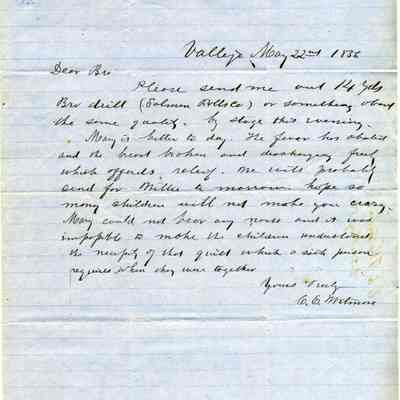 Vallejo May 22nd 1886
Dear Bro.
Please send me out 14 yds
Bro drill (Salmon Falls Co) or something about
the same quality. by stage this evening.
Mary is better to day. The fever has abated
and the breast broken and discharging freely
which affords relief. We will probably
send for Willie to morrow. hope so
many children will not make you crazy.
Mary could not bear any noise and it was
impossible to make the children understand
the necessity of that quiet which a sick person
requires when they were together
Yours Truly
C. C.